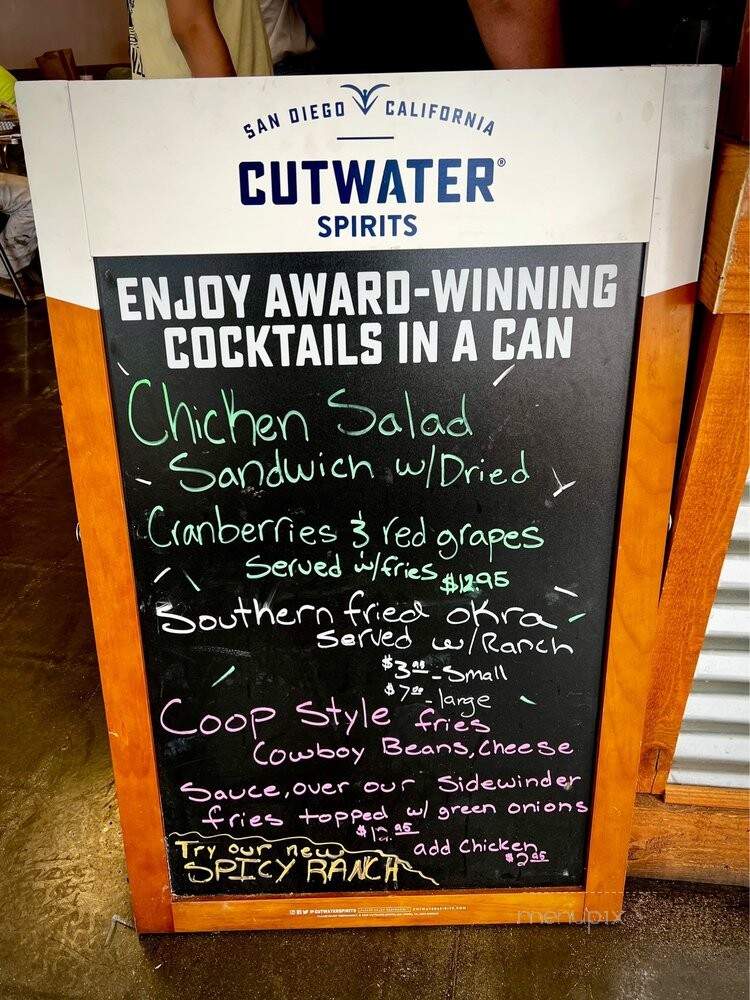 SAN DIEGO CALIFORNIA
CUTWATER®
SPIRITS
ENJOY AWARD-WINNING
COCKTAILS IN A CAN
Chicken Salad
Sandwich w/Dried
Cranberries & red grapes
Served w/fries $12.95
Southern fried okra
Served w/Ranch
$3.99 - Small
- large
Coop Style fries
Cowboy Beans, Cheese
Sauce, over our Sidewinder
fries topped w/ green onions
add Chicken
$2.95
Try our new
SPICY RANCH
@CUTWATERSPIRITS
CUTWATERSPIRITS.COM
menupix